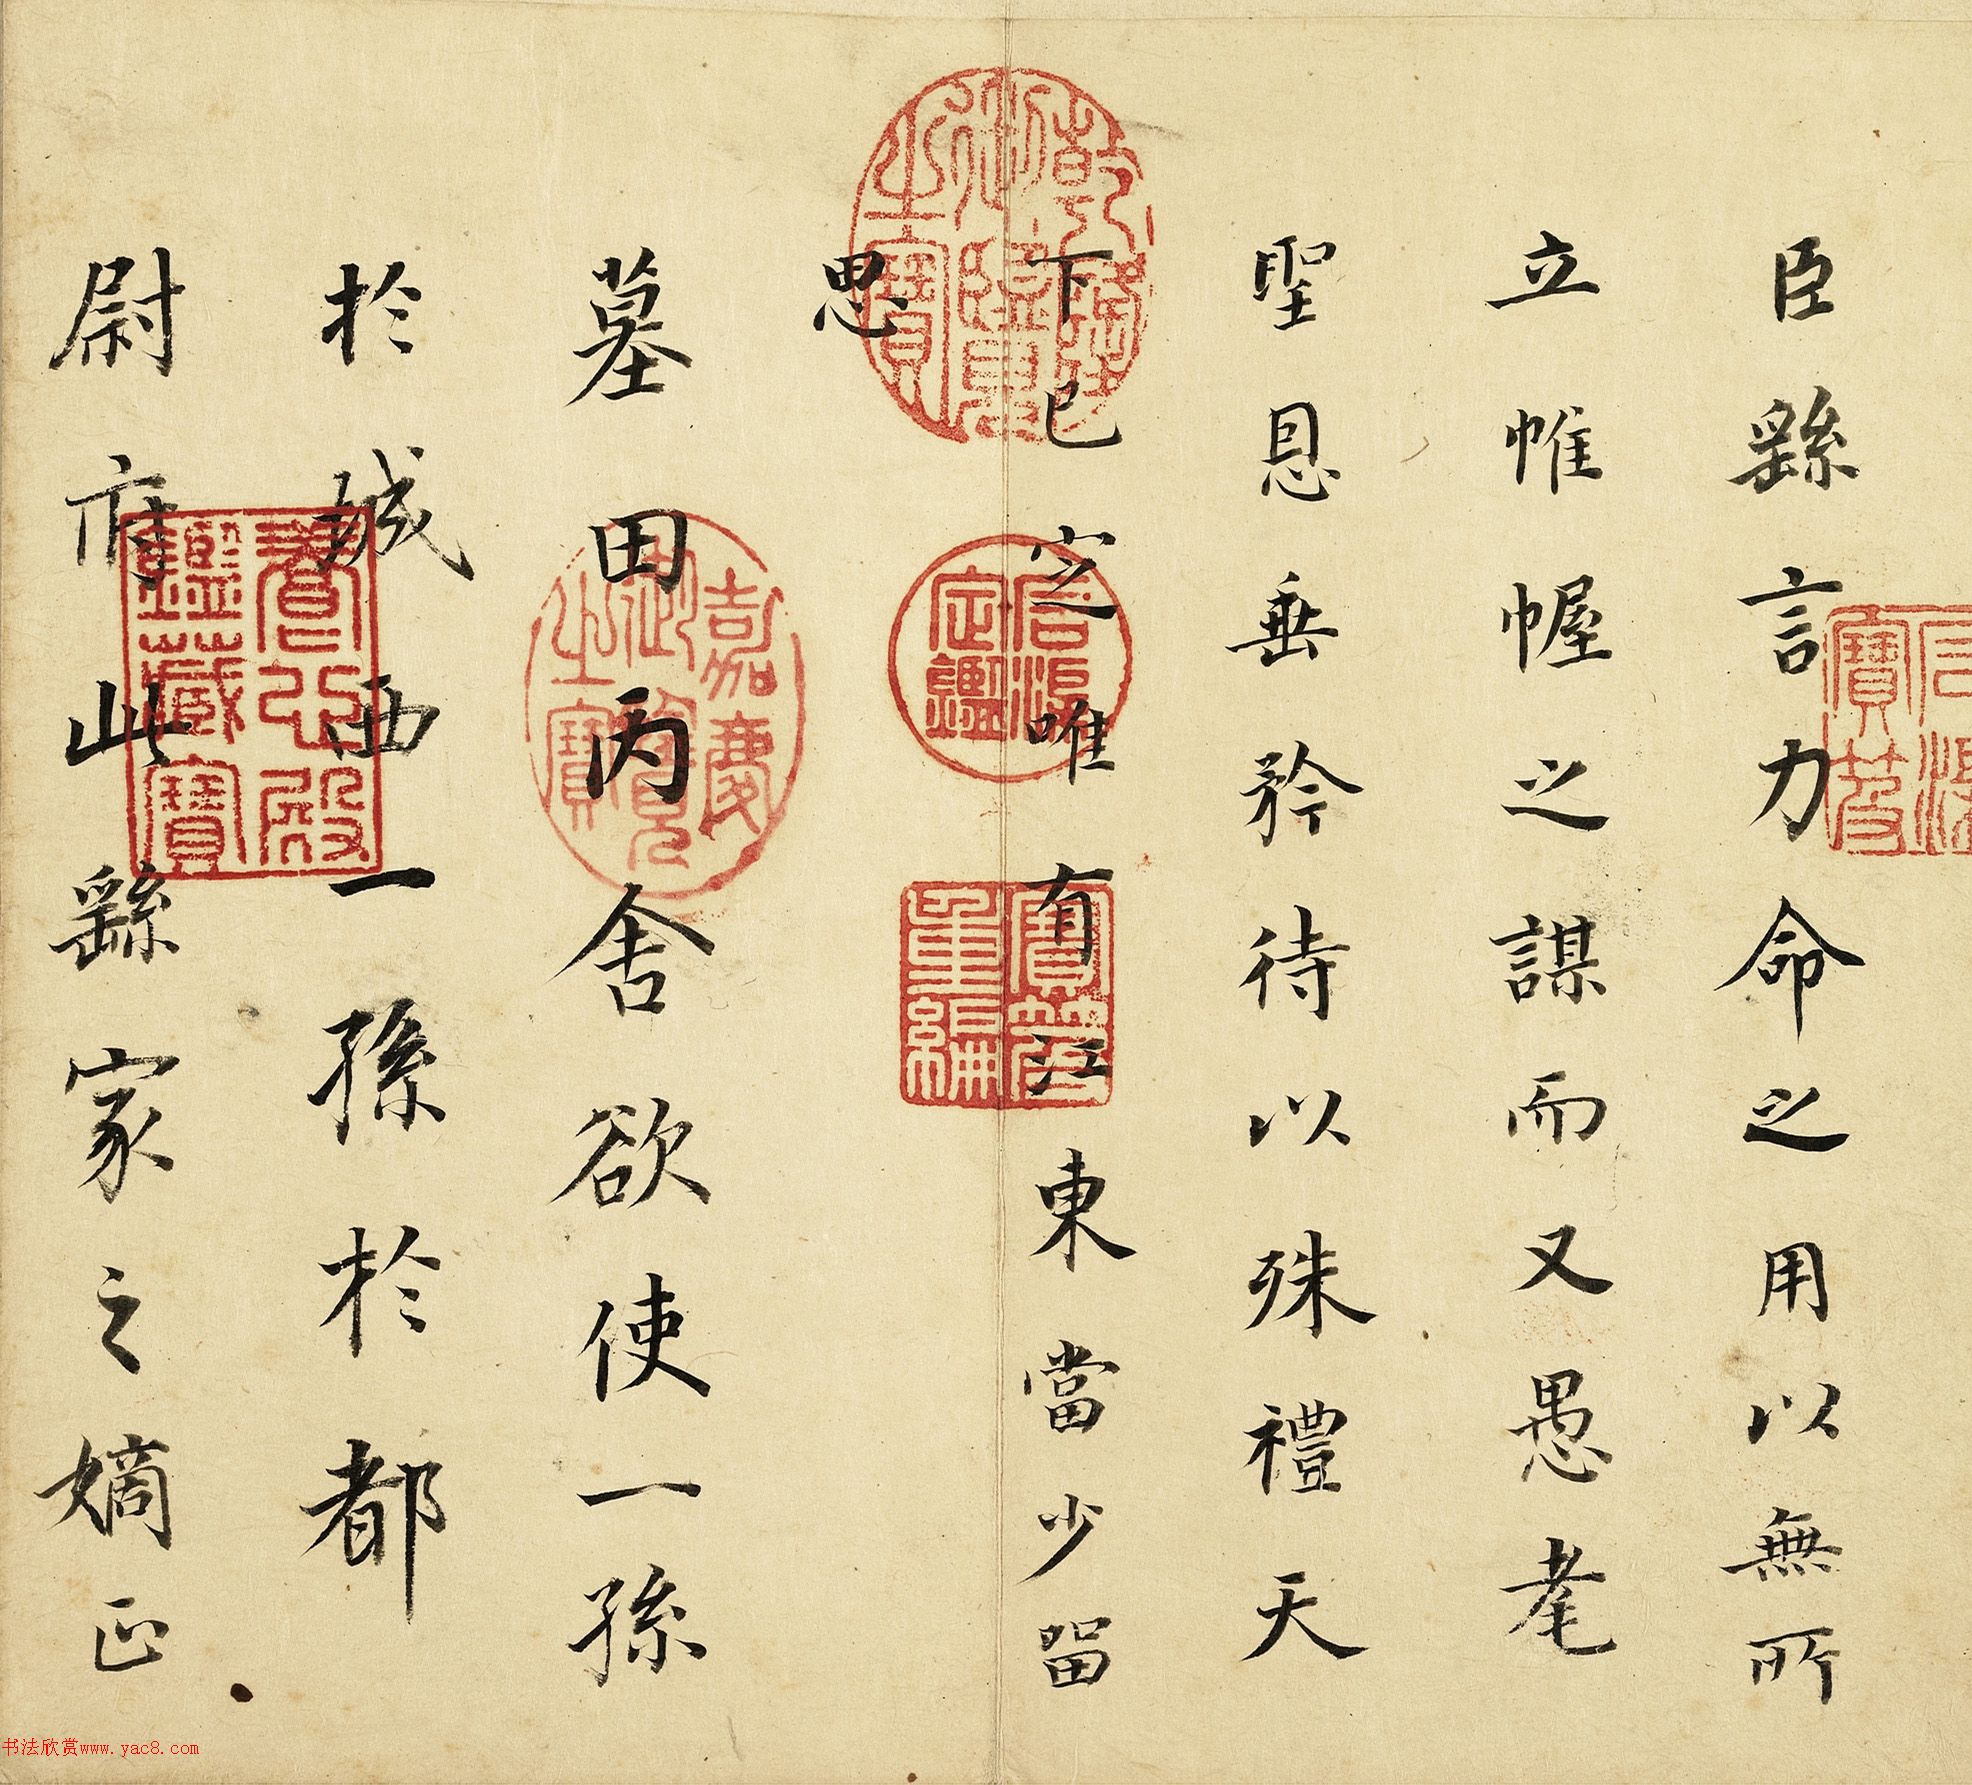 臣繇言力命之用以無所
立帷幄之謀而又愚耄
聖恩垂矜待以殊禮天
下已定唯有江東當少留
思
墓田丙舍欲使一孫
於城西一孫於都
尉府此繇家之嫡正
石渠寶笈
乾隆御覽之寶
石渠定鑑
寶笈重編
嘉慶御覽之寶
養心殿鑑藏寶
书法欣赏www.yac8.com